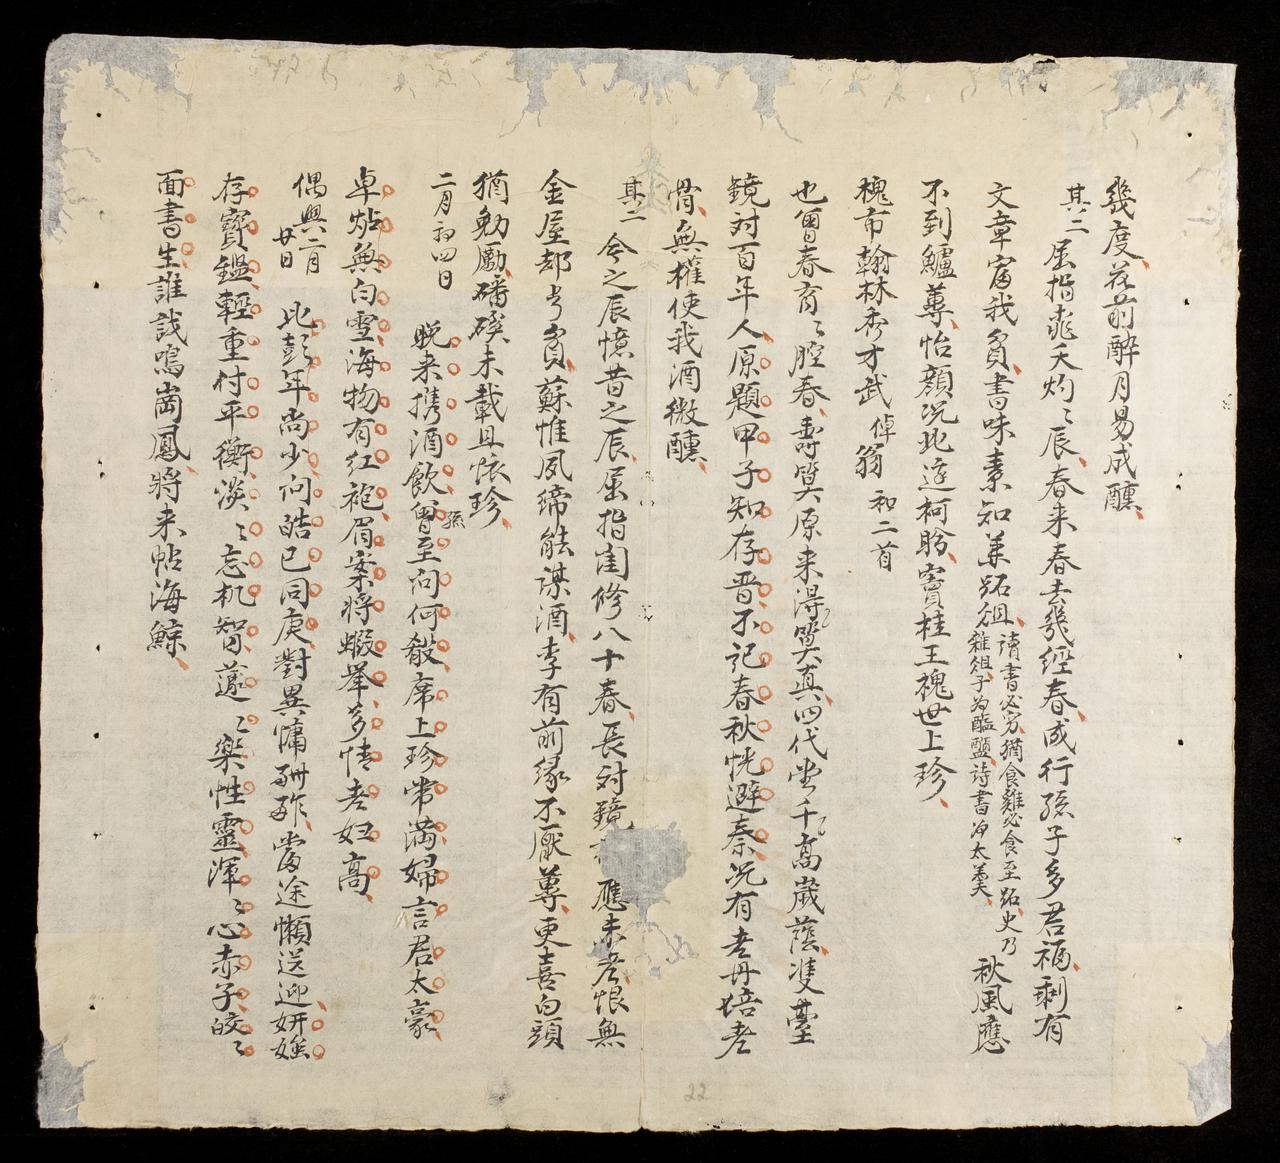 幾度花前醉月易成醺
其二 屈指堯天灼〻辰春来春去幾經春成行孫子多君福剩有
文章富我貧書味素知羊跖俎讀書必穷猶食雞必食至跖史乃雜俎子为醢鹽詩書为太羹秋風應
不到鱸蓴怡顏况此庭柯盼竇桂王槐世上珍
槐市翰林秀才武倬翁 和二首
也曾春育〻腔春壽筭原来得筭真四代堂千髙歲蔭雙臺
鏡対百年人原題甲子知存晋不記春秋恍避秦况有老丹培老
骨無權使我酒微醺
其二 今之辰憶昔之辰屈指閨修八十春長対鏡 應未老恨無
金屋却芳貧蘇惟夙締能谋酒李有前縁不厭蓴更喜白頭
猶勉勵磻磎未載且懐珍
二月初四日 晚来携酒飲曾孫至问何殽席上珍常満婦言君太豪
卓好無白雪海物有红袍眉案将蝦举多情老妇高
偶興二月廿日 比彭年尚少问皓已同庚對異慵酬酢當途懶送迎妍媸
存寳鑑輕重付平衡淡〻忘机智蘧〻樂性靈渾〻心赤子皎〻
面書生誰識鳴崗鳳将来帖海鯨